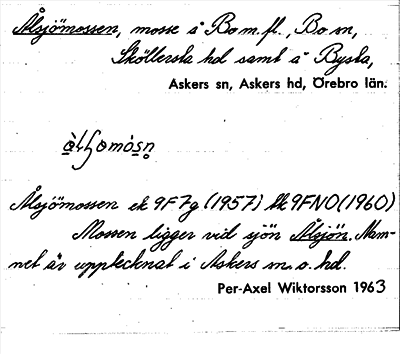 Ålsjömossen, mosse å Bo m.fl., Bo sn,
Sköllersta hd samt å Bysta,
Askers sn, Askers hd, Örebro län.
Ålsjömossen ek 9F7g (1957) tk 9FNO (1960)
Mossen ligger vid sjön Ålsjön. Nam-
net är upptecknat i Askers sn o. hd.
Per-Axel Wiktorsson 1963